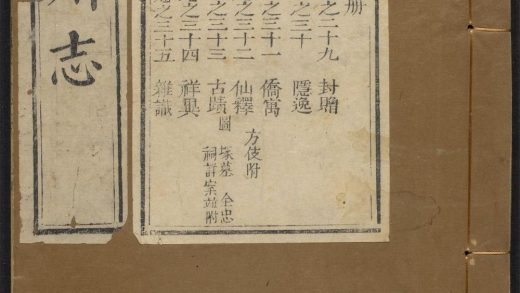 册
之二十九 封贈
之三十 隱逸
之三十一 僑寓
之三十二 仙釋 方伎附
之三十三 古蹟 圖 塚墓 全忠
祠詳案 附
之三十四 祥異
之三十五 雜識
志